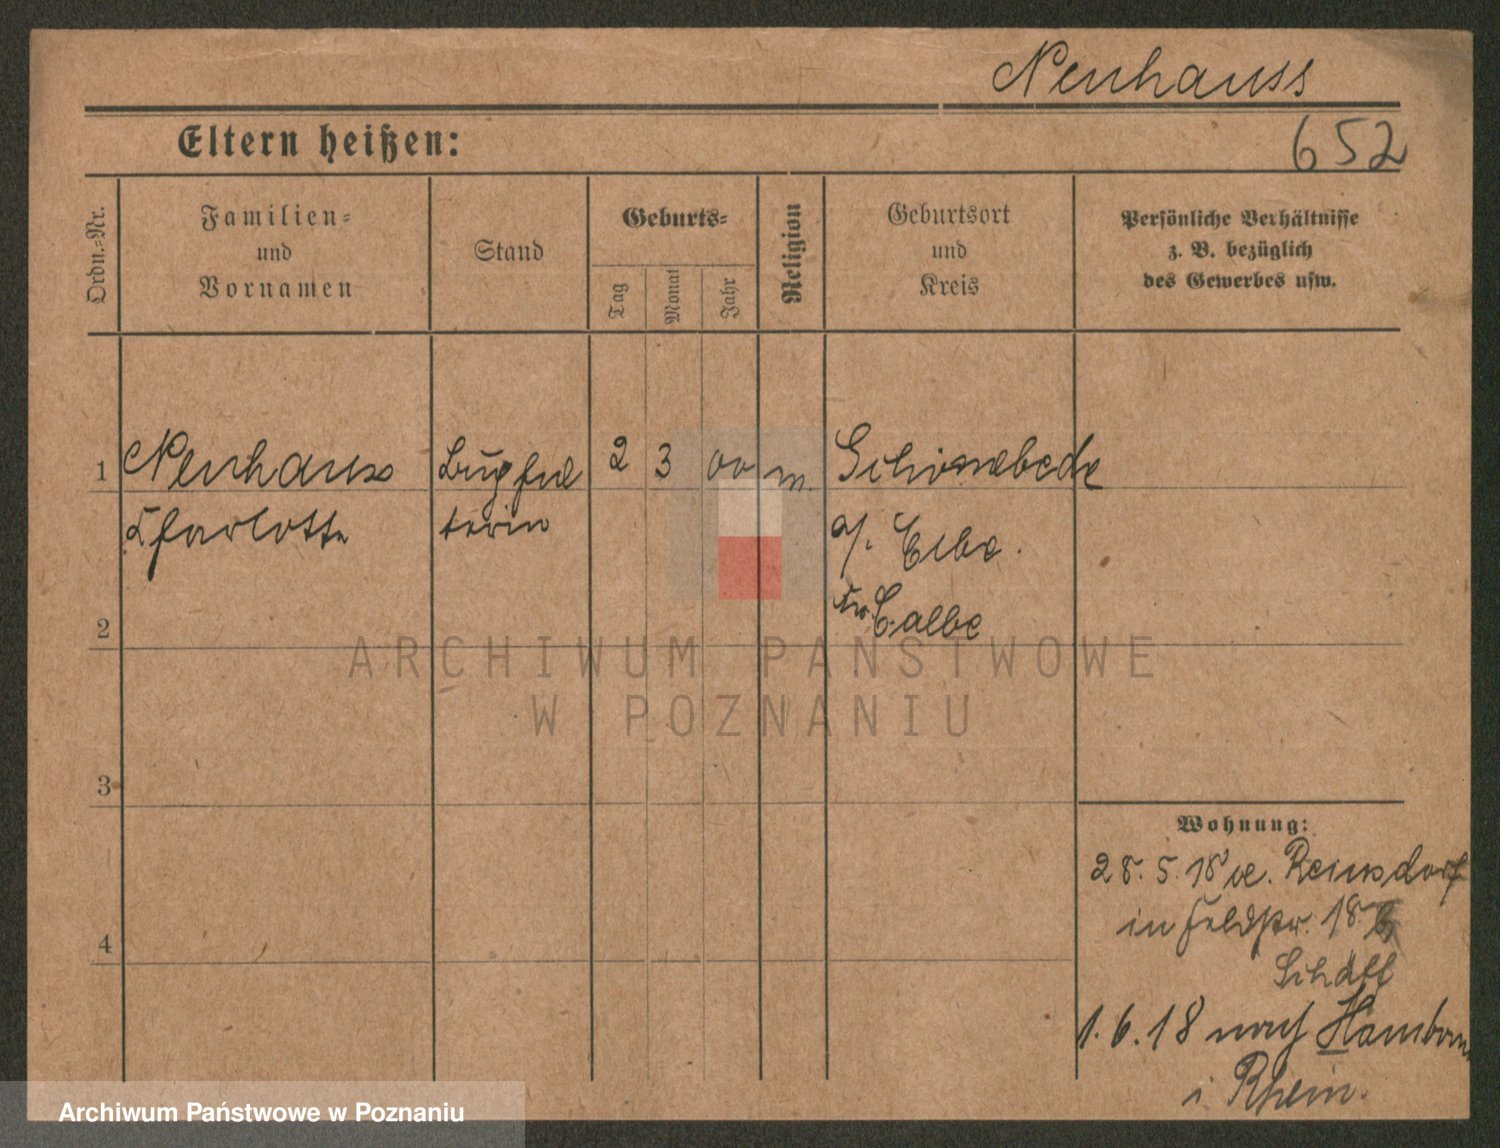 Neuhauss
Eltern heißen:
652
Ordn.-Nr.
Familien-
und
Vornamen
Stand
Geburts-
Tag
Monat
Jahr
Religion
Geburtsort
und
Kreis
Persönliche Verhältnisse
z. B. bezüglich
des Gewerbes usw.
1 Neuhauss 2 3 00 Schönebeck
Charlotte terin a/. Elbe.
2 Kr. Calbe
ARCHIWUM PAŃSTWOWE
W POZNANIU
3
Wohnung:
28. 5. 18 Reinsdorf
4 in Feldstr. 18
1. 6. 18 nach Hamborn
i Rhein.
Archiwum Państwowe w Poznaniu